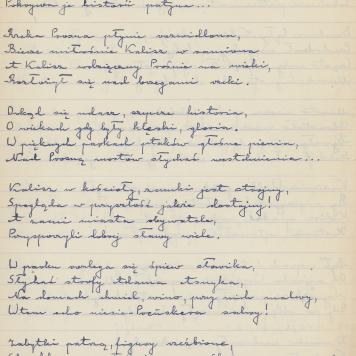 Pokrywa je historii patyna...
Rzeka Prosna płynie zarwidlona,
Bierze miłośnie Kalisz w ramiona
A Kalisz wdzięczny Prośnie na wieki,
Rozłożył się nad brzegami rzeki.
Dokąd się udasz, szepcze historia,
O wiekach gdy były klęski, gloria.
W pięknych parkach ptaków głośne pienia,
Nad Prosną mostów słychać westchnienia...
Kalisz w kościoły, zamki jest strojny,
Spogląda w przyszłość jakże dostojny!
A zacni miasta obywatele,
Przysporzyli Tobie sławy wiele.
W parku rozlega się śpiew słowika,
Słychać strofy Adama Asnyka,
Na domach chmiel, wino, przy nich malwy,
W tem echo niesie salwy!
Zabytki patrzą, figury rzeźbione,